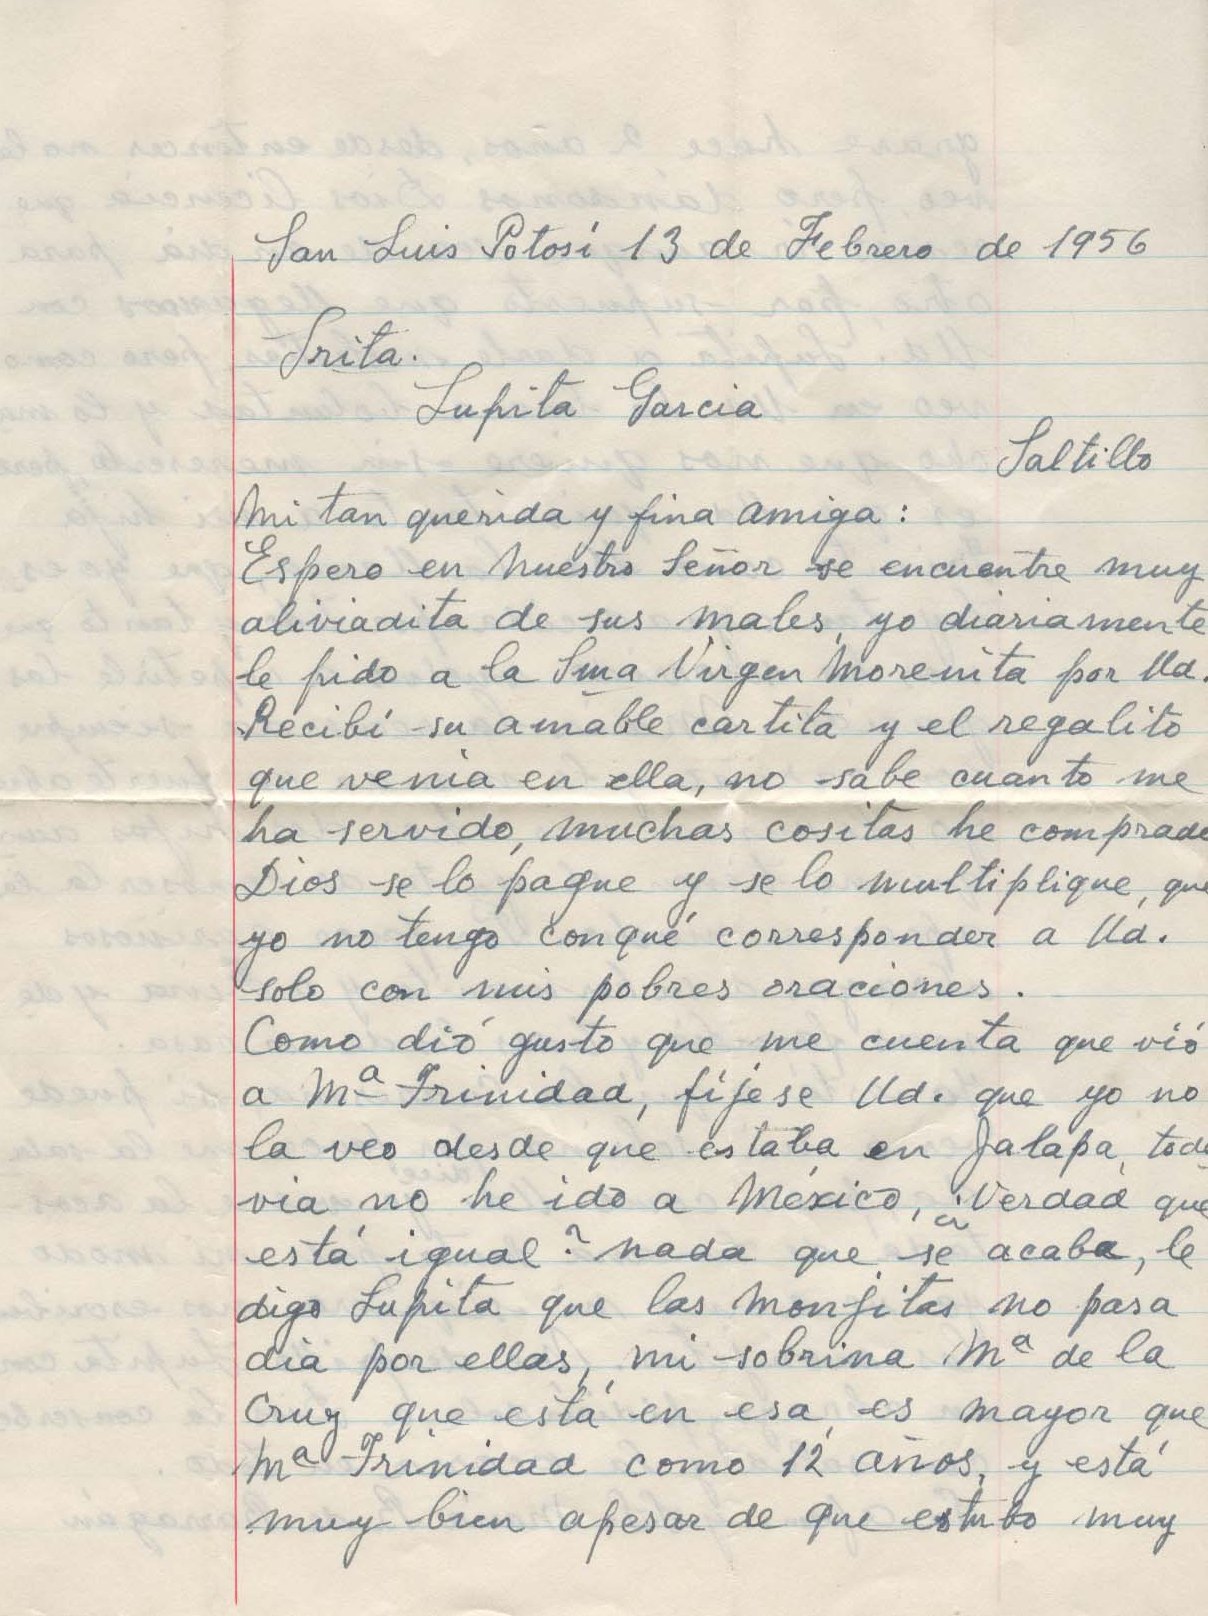 San Luis Potosí 13 de Febrero de 1956
Srita.
Lupita Garcia
Saltillo
Mi tan querida y fina amiga:
Espero en Nuestro Señor se encuentre muy
aliviadita de sus males, yo diariamente
le pido a la Sma Virgen Morenita por Ud.
Recibí su amable cartita y el regalito
que venia en ella, no sabe cuanto me
ha servido, muchas cositas he comprado
Dios se lo pague y se lo multiplique, que
yo no tengo conqué corresponder a Ud.
solo con mis pobres oraciones.
Como dió gusto que me cuenta que vió
a Mª Trinidad, fíjese Ud. que yo no
la veo desde que estaba en Jalapa, toda
via no he ido a México, ¿Verdad que
está igual? nada que se acaba, le
digo Lupita que las Monjitas no pasa
dia por ellas, mi sobrina Mª de la
Cruz que está en esa, es mayor que
Mª Trinidad como 12 años, y está
muy bien apesar de que estubo muy